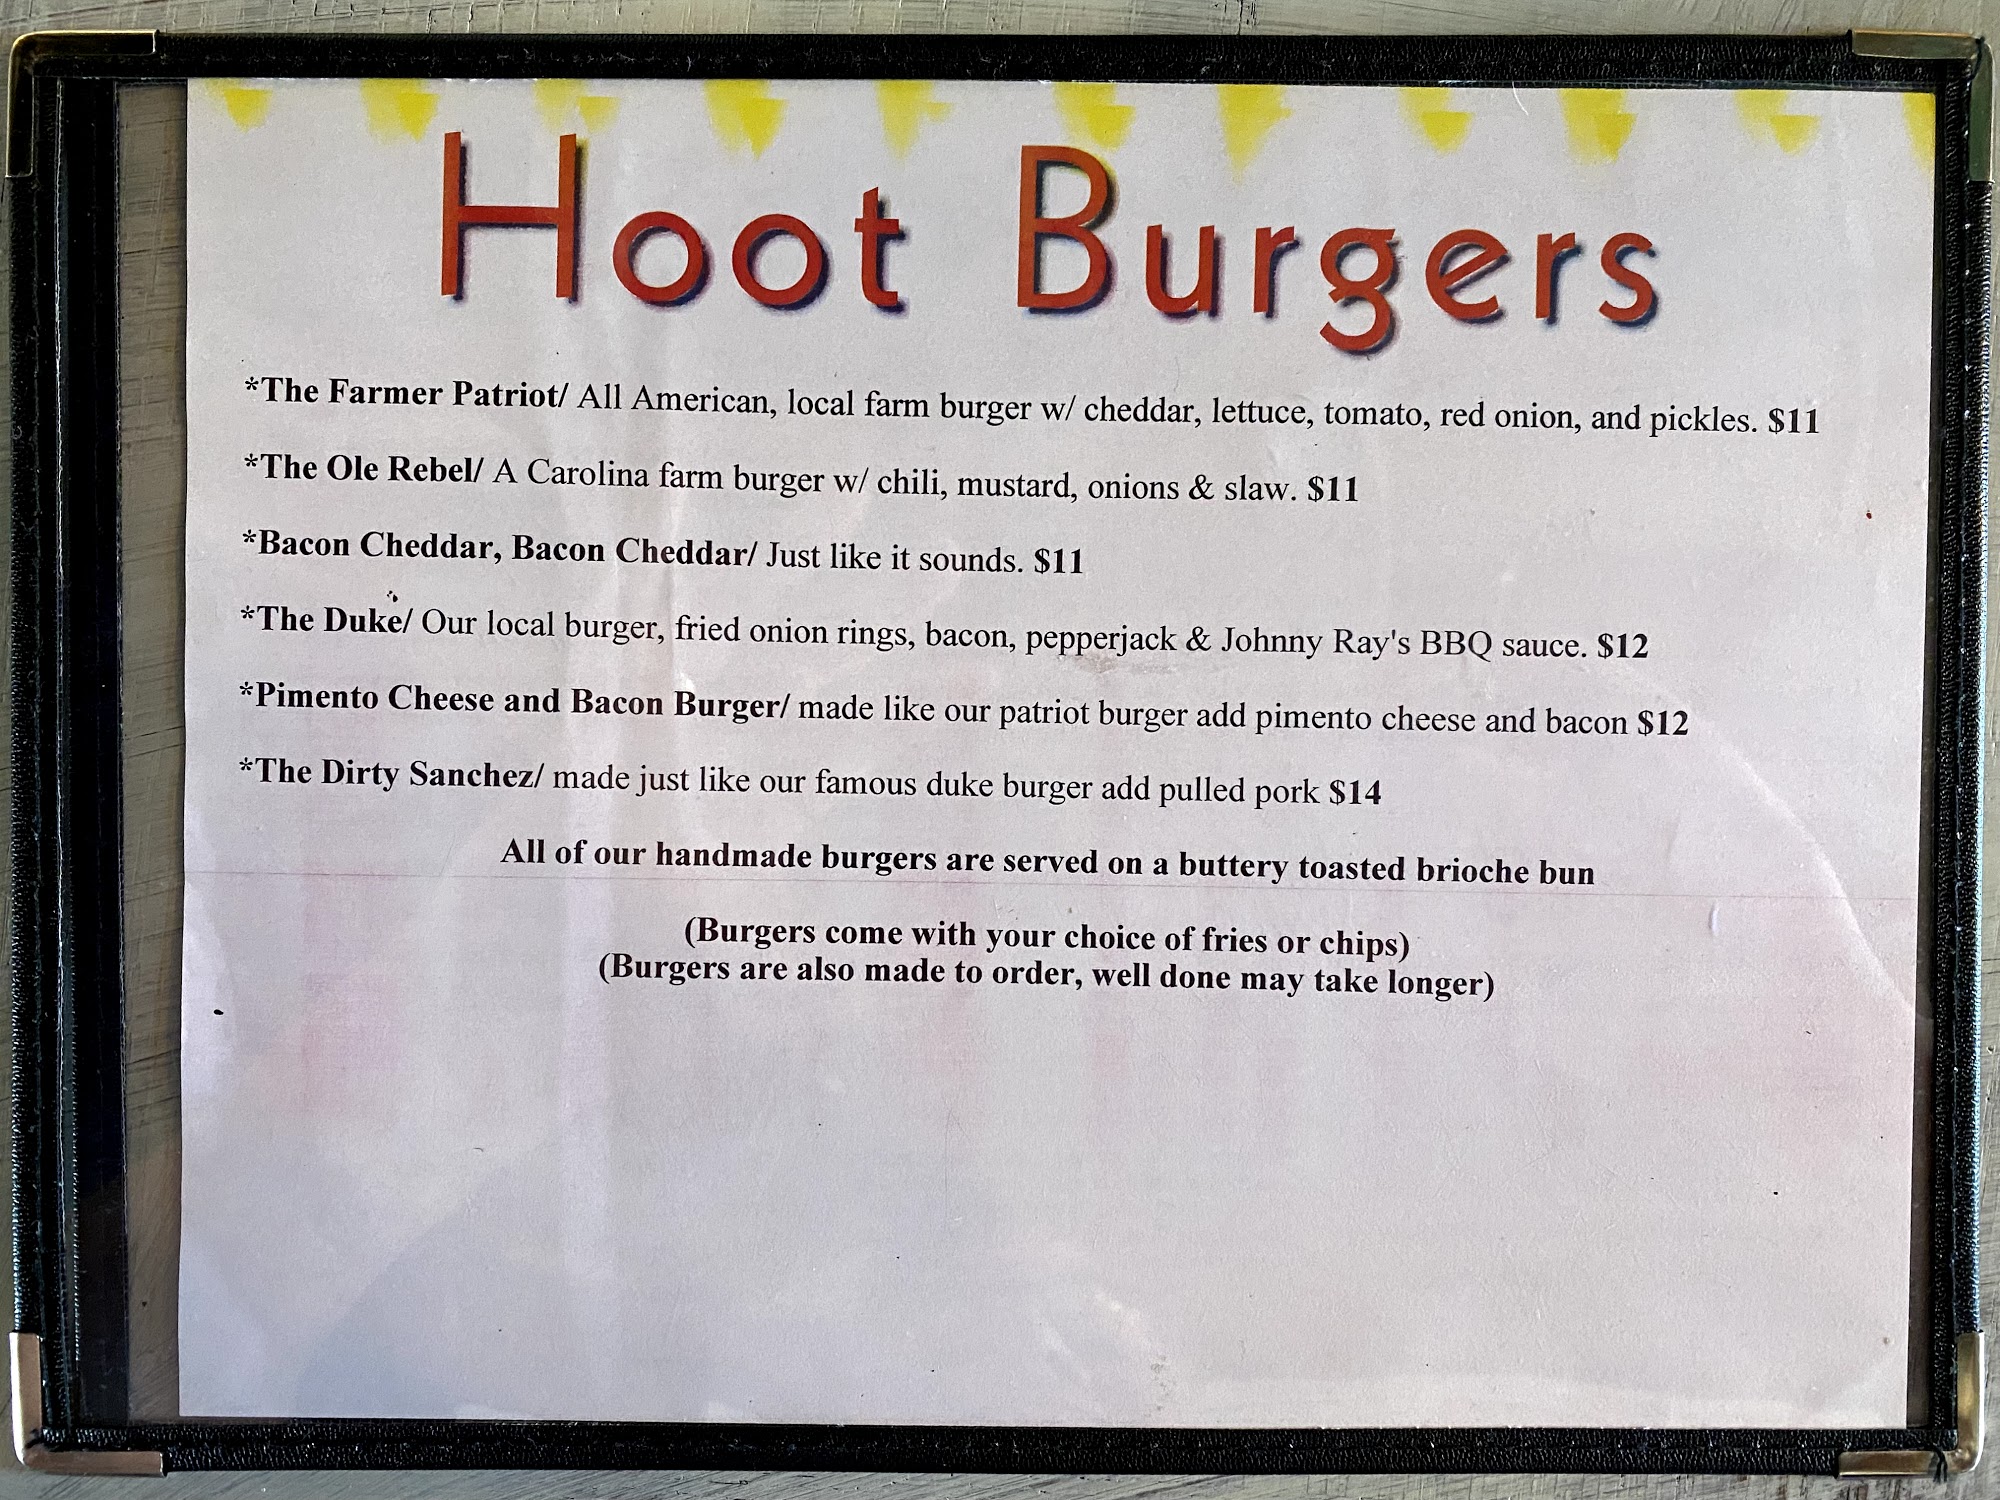 Hoot Burgers
*The Farmer Patriot/ All American, local farm burger w/ cheddar, lettuce, tomato, red onion, and pickles. $11
*The Ole Rebel/ A Carolina farm burger w/ chili, mustard, onions & slaw. $11
*Bacon Cheddar, Bacon Cheddar/ Just like it sounds. $11
*The Duke/ Our local burger, fried onion rings, bacon, pepperjack & Johnny Ray's BBQ sauce. $12
*Pimento Cheese and Bacon Burger/ made like our patriot burger add pimento cheese and bacon $12
*The Dirty Sanchez/ made just like our famous duke burger add pulled pork $14
All of our handmade burgers are served on a buttery toasted brioche bun
(Burgers come with your choice of fries or chips)
(Burgers are also made to order, well done may take longer)